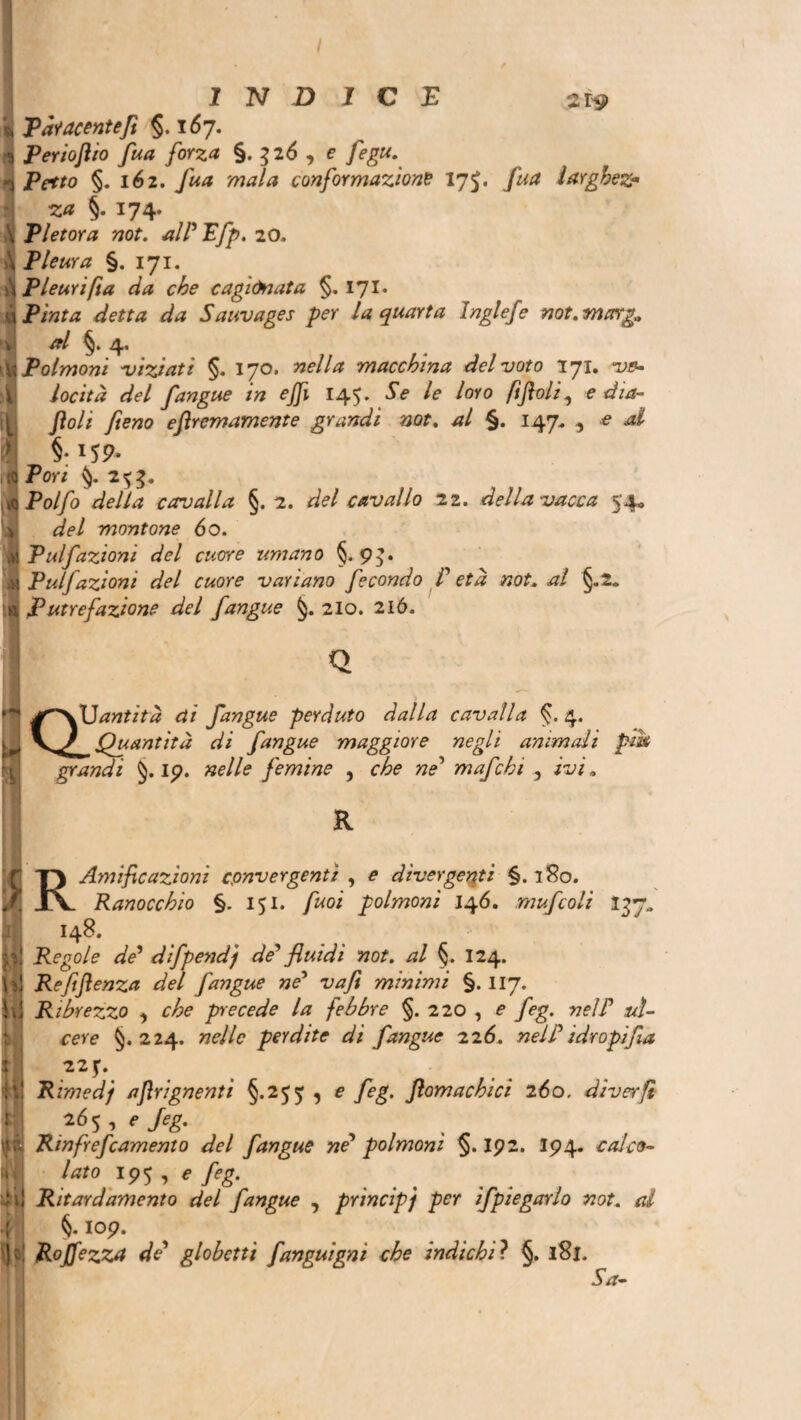 INDICE 219
Paracentesi §. 167.
Periostio sua forza §. 326, e segu.
Petto §. 162. sua mala conformazione 175. sua larghez-
za §. 174.
Pletora not. all'Esp. 20.
Pleura §. 171.
Pleurisia da che cagionata §. 171.
Pinta detta da Sauvages per la quarta Inglese not. marg.
al §. 4.
Polmoni viziati §. 170. nella macchina del voto 171. ve-
locità del sangue in essi 145. Se le loro sistoli, e dia-
stoli sieno estremamente grandi not. al §. 147., e al
§. 159.
Pori §. 253.
Polso della cavalla §. 2. del cavallo 22. della vacca 54.
del montone 60.
Pulsazioni del cuore umano §. 93.
Pulsazioni del cuore variano secondo l'età not. al §. 2.
Putrefazione del sangue §. 210. 216.
Q
QUantità di sangue perduto dalla cavalla §. 4.
Quantità di sangue maggiore negli animali più
grandi §. 19. nelle femine, che ne' maschi, ivi.
R
RAmificazioni convergenti, e divergenti §. 180.
Ranocchio §. 151. suoi polmoni 146. muscoli 137.
148.
Regole de' dispendj de' fluidi not. al §. 124.
Resistenza del sangue ne' vasi minimi §. 117.
Ribrezzo, che precede la febbre §. 220, e seg. nell' ul-
cere §. 224. nelle perdite di sangue 226. nell'idropisia
225.
Rimedj astrignenti §. 255, e seg. stomachici 260. diversi
265, e seg.
Rinfrescamento del sangue ne' polmoni §. 192. 194. calco-
lato 195, e seg.
Ritardamento del sangue, principj per ispiegarlo not. al
§. 109.
Rossezza de' globetti sanguigni che indichi? §. 181.
Sa-